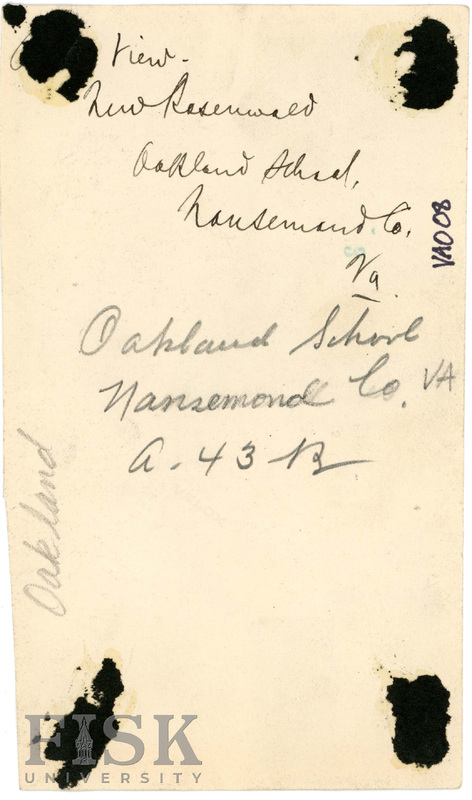 View-
New Rosenwald
Oakland School,
Nansemond Co.
Va
VA008
Oakland School
Nansemond Co. VA
A-43-R
Oakland
FISK
UNIVERSITY